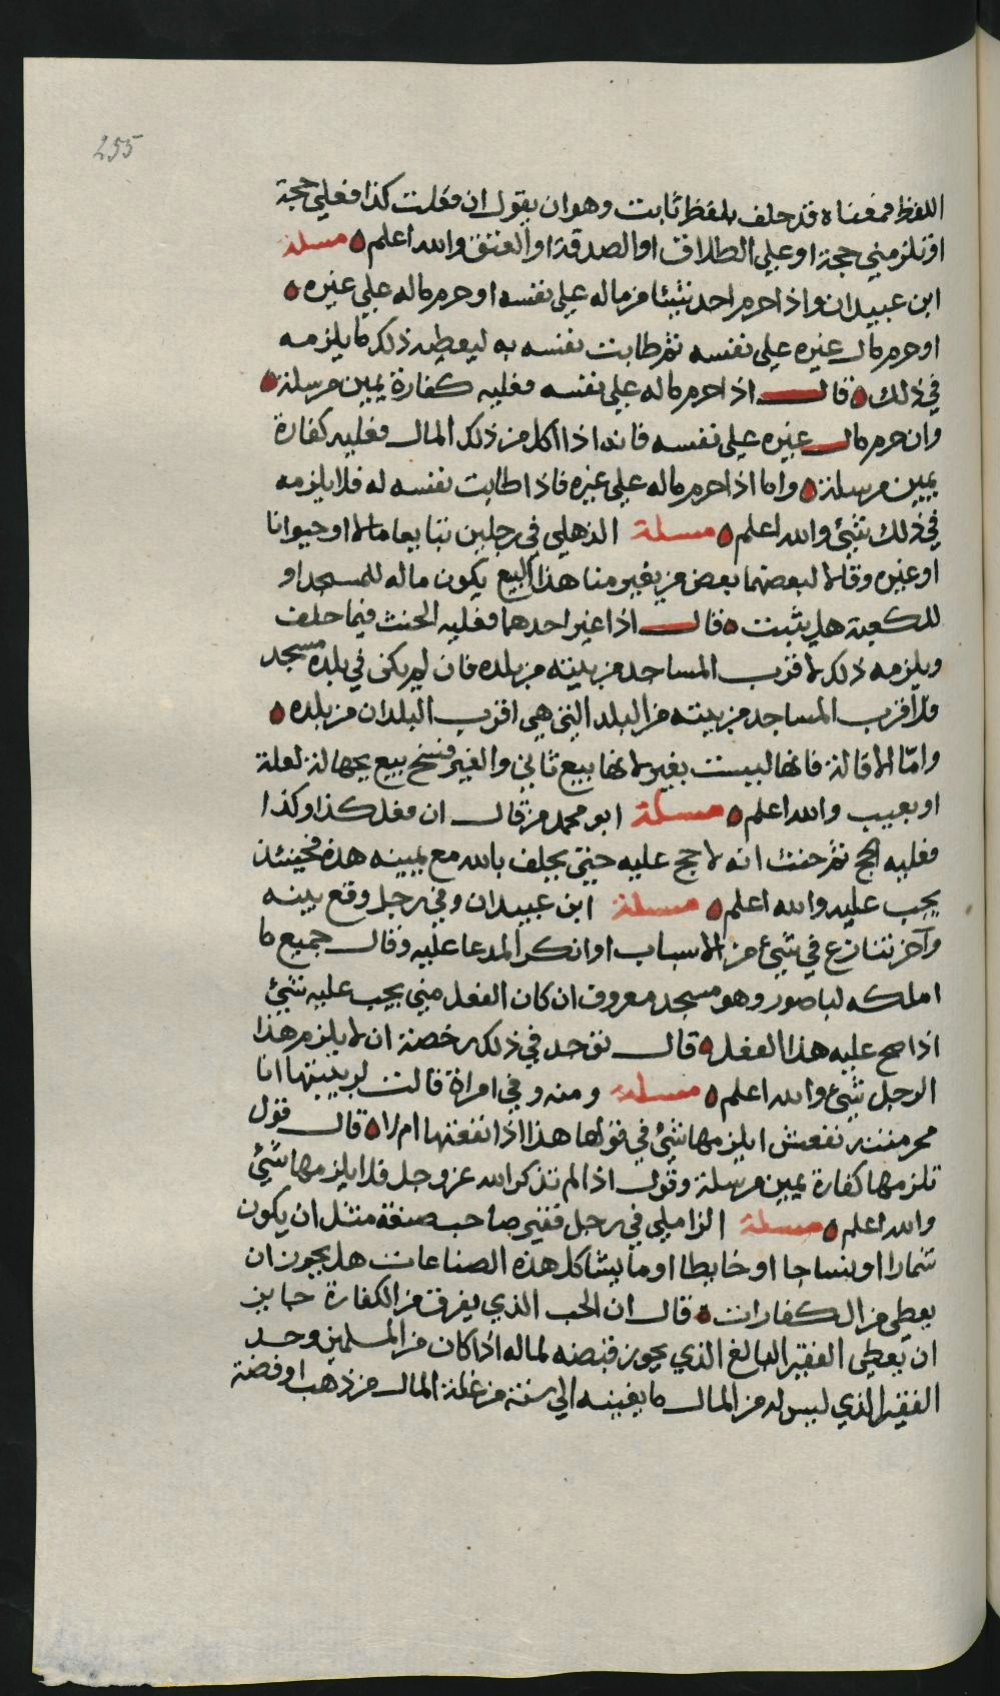 255
اللفظ فمعناه قد حلف بلفظ ثابت وهو ان يقول ان فعلت كذا فعلي حجة
او تلزمني حجة او علي الطلاق او الصدقة او العتق والله اعلم مسئلة
ابن عبيدان واذا حرم احد شيئا من ماله على نفسه او حرم ماله على غيره
او حرم مال غيره على نفسه ثم طابت نفسه به ليعطيه ذلك ما يلزمه
في ذلك قال اذا حرم ماله على نفسه فعليه كفارة يمين مرسلة
وان حرم مال غيره على نفسه فانه اذا اكل من ذلك المال فعليه كفارة
يمين مرسلة واما اذا حرم ماله على غيره فاذا طابت نفسه له فلا يلزمه
في ذلك شيء والله اعلم مسئلة الذهلي في رجلين تبايعا مالا او حيوانا
او غيره وقالا لبعضهما بعض من يغير منا هذا البيع يكون ماله للمسجد او
للكعبة هل يثبت قال اذا غير احدهما فعليه الحنث فيما حلف
ويلزمه ذلك لاقرب المساجد من بيته من بلده فان لم يكن في بلده مسجد
فلاقرب المساجد من بيته من البلد التي هي اقرب البلدان من بلده
وامّا الاقالة فانها ليست بغير لانها بيع ثاني والغير فسخ بيع بجهالة لعلة
او بعيب والله اعلم مسئلة ابو محمد من قال ان فعل كذا وكذا
فعليه الحج ثم حنث انه لا حج عليه حتى يحلف بالله مع يمينه هذه فحينئذ
يجب عليه والله اعلم مسئلة ابن عبيدان وفي رجل وقع بينه
وآخر تنازع في شيء من الاسباب او انكر المدعا عليه وقال جميع ما
املكه لباصور وهو مسجد معروف ان كان الفعل مني يجب عليه شيء
اذا صح عليه هذا الفعل قال نوجد في ذلك رخصة ان لا يلزم هذا
الرجل شيء والله اعلم مسئلة ومنه وفي امراة قالت لربيبتها انا
محرمتنـ نفعتش ايلزمها شيء في قولها هذا اذا نفعتها ام لا قال قول
تلزمها كفارة يمين مرسلة وقول اذا لم تذكر الله عز وجل فلا يلزمها شيء
والله اعلم مسئلة الزاملي في رجل فقير صاحب صنعة مثل ان يكون
شمارا او نساجا او خايطا او ما يشاكل هذه الصناعات هل يجوز ان
يعطى من الكفارات قال ان الحب الذي يفرق من الكفارة جايز
ان يعطى الفقير البالغ الذي يجوز قبضه لماله اذا كان من المسلمين وحد
الفقير الذي ليس له من المال ما يغنيه الى سنة من غلة المال من ذهب او فضة